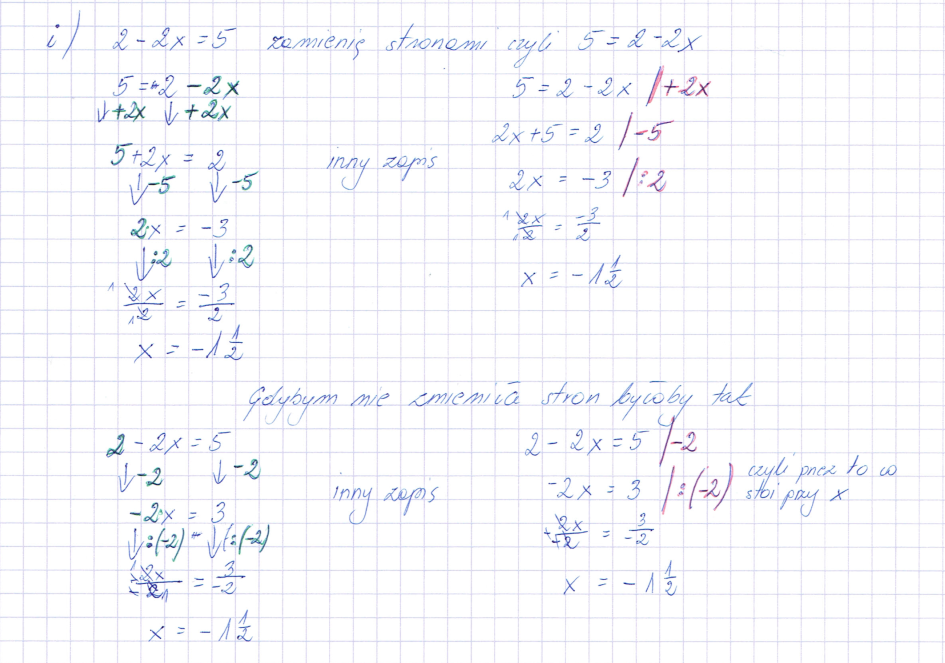 i) 2 - 2x = 5 zamienię stronami czyli 5 = 2 - 2x
5 = 2 - 2x
↓+2x ↓+2x
5 + 2x = 2
↓-5 ↓-5
2x = -3
↓:2 ↓:2
2x/2 = -3/2
x = -1 1/2
inny zapis
5 = 2 - 2x /+2x
2x + 5 = 2 /-5
2x = -3 /:2
2x/2 = -3/2
x = -1 1/2
Gdybym nie zmieniła stron byłoby tak
2 - 2x = 5
↓-2 ↓-2
-2x = 3
↓:(-2) ↓:(-2)
-2x/-2 = 3/-2
x = -1 1/2
inny zapis
2 - 2x = 5 /-2
-2x = 3 /:(-2) czyli przez to co
stoi przy x
-2x/-2 = 3/-2
x = -1 1/2